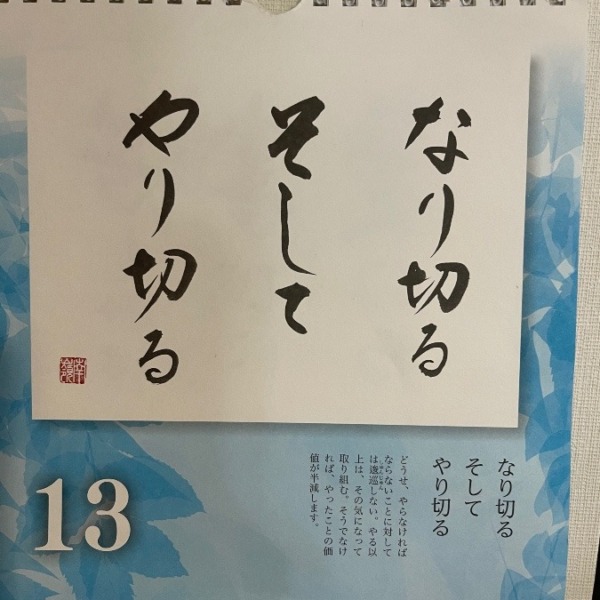 なり切る
そして
やり切る
13
なり切る
そして
やり切る
どうせ、やらなければ
ならないことに対して
は逡巡しない。やる以
上は、その気になって
取り組む。そうでなけ
れば、やったことの価
値が半減します。